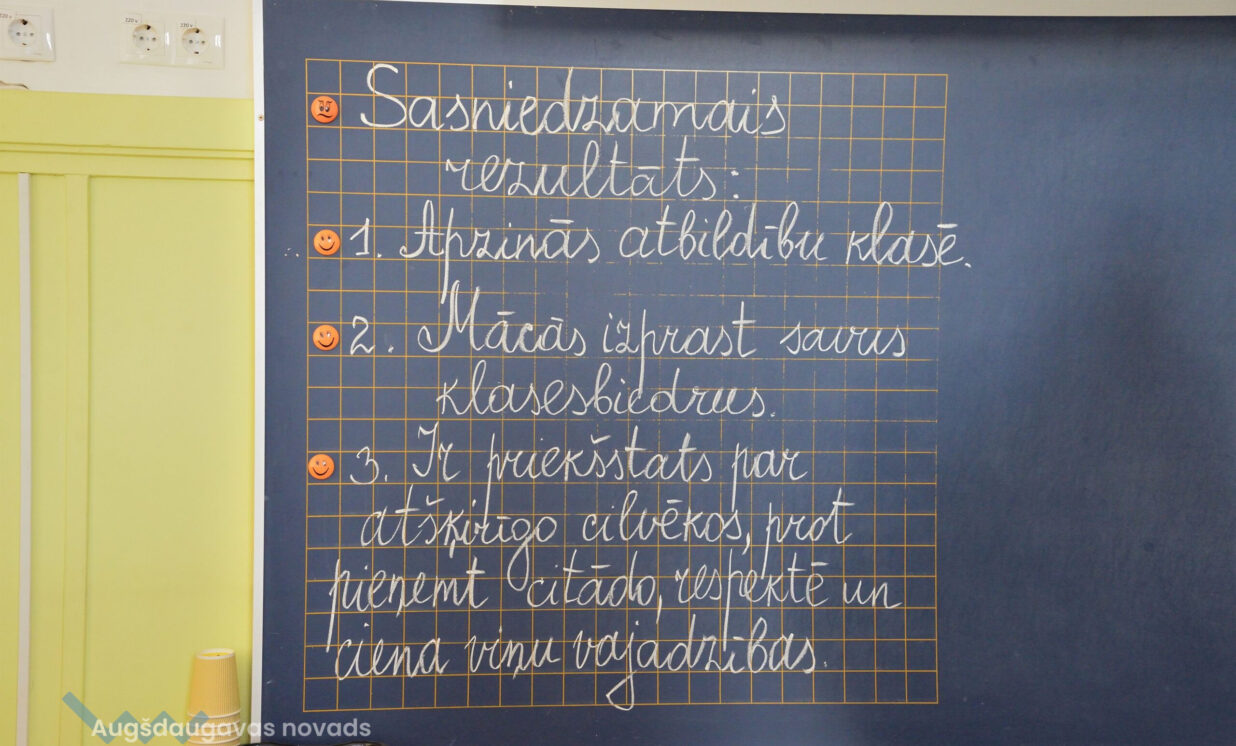 220 v
220 v
220 v
Sasniedzamais
rezultāts:
1. Apzinās atbildību klasē.
2. Mācās izprast savus
klasesbiedrus.
3. Ir priekšstats par
atšķirīgo cilvēkos, prot
pieņemt citādo, respektē un
ciena viņu vajadzības.
Augšdaugavas novads